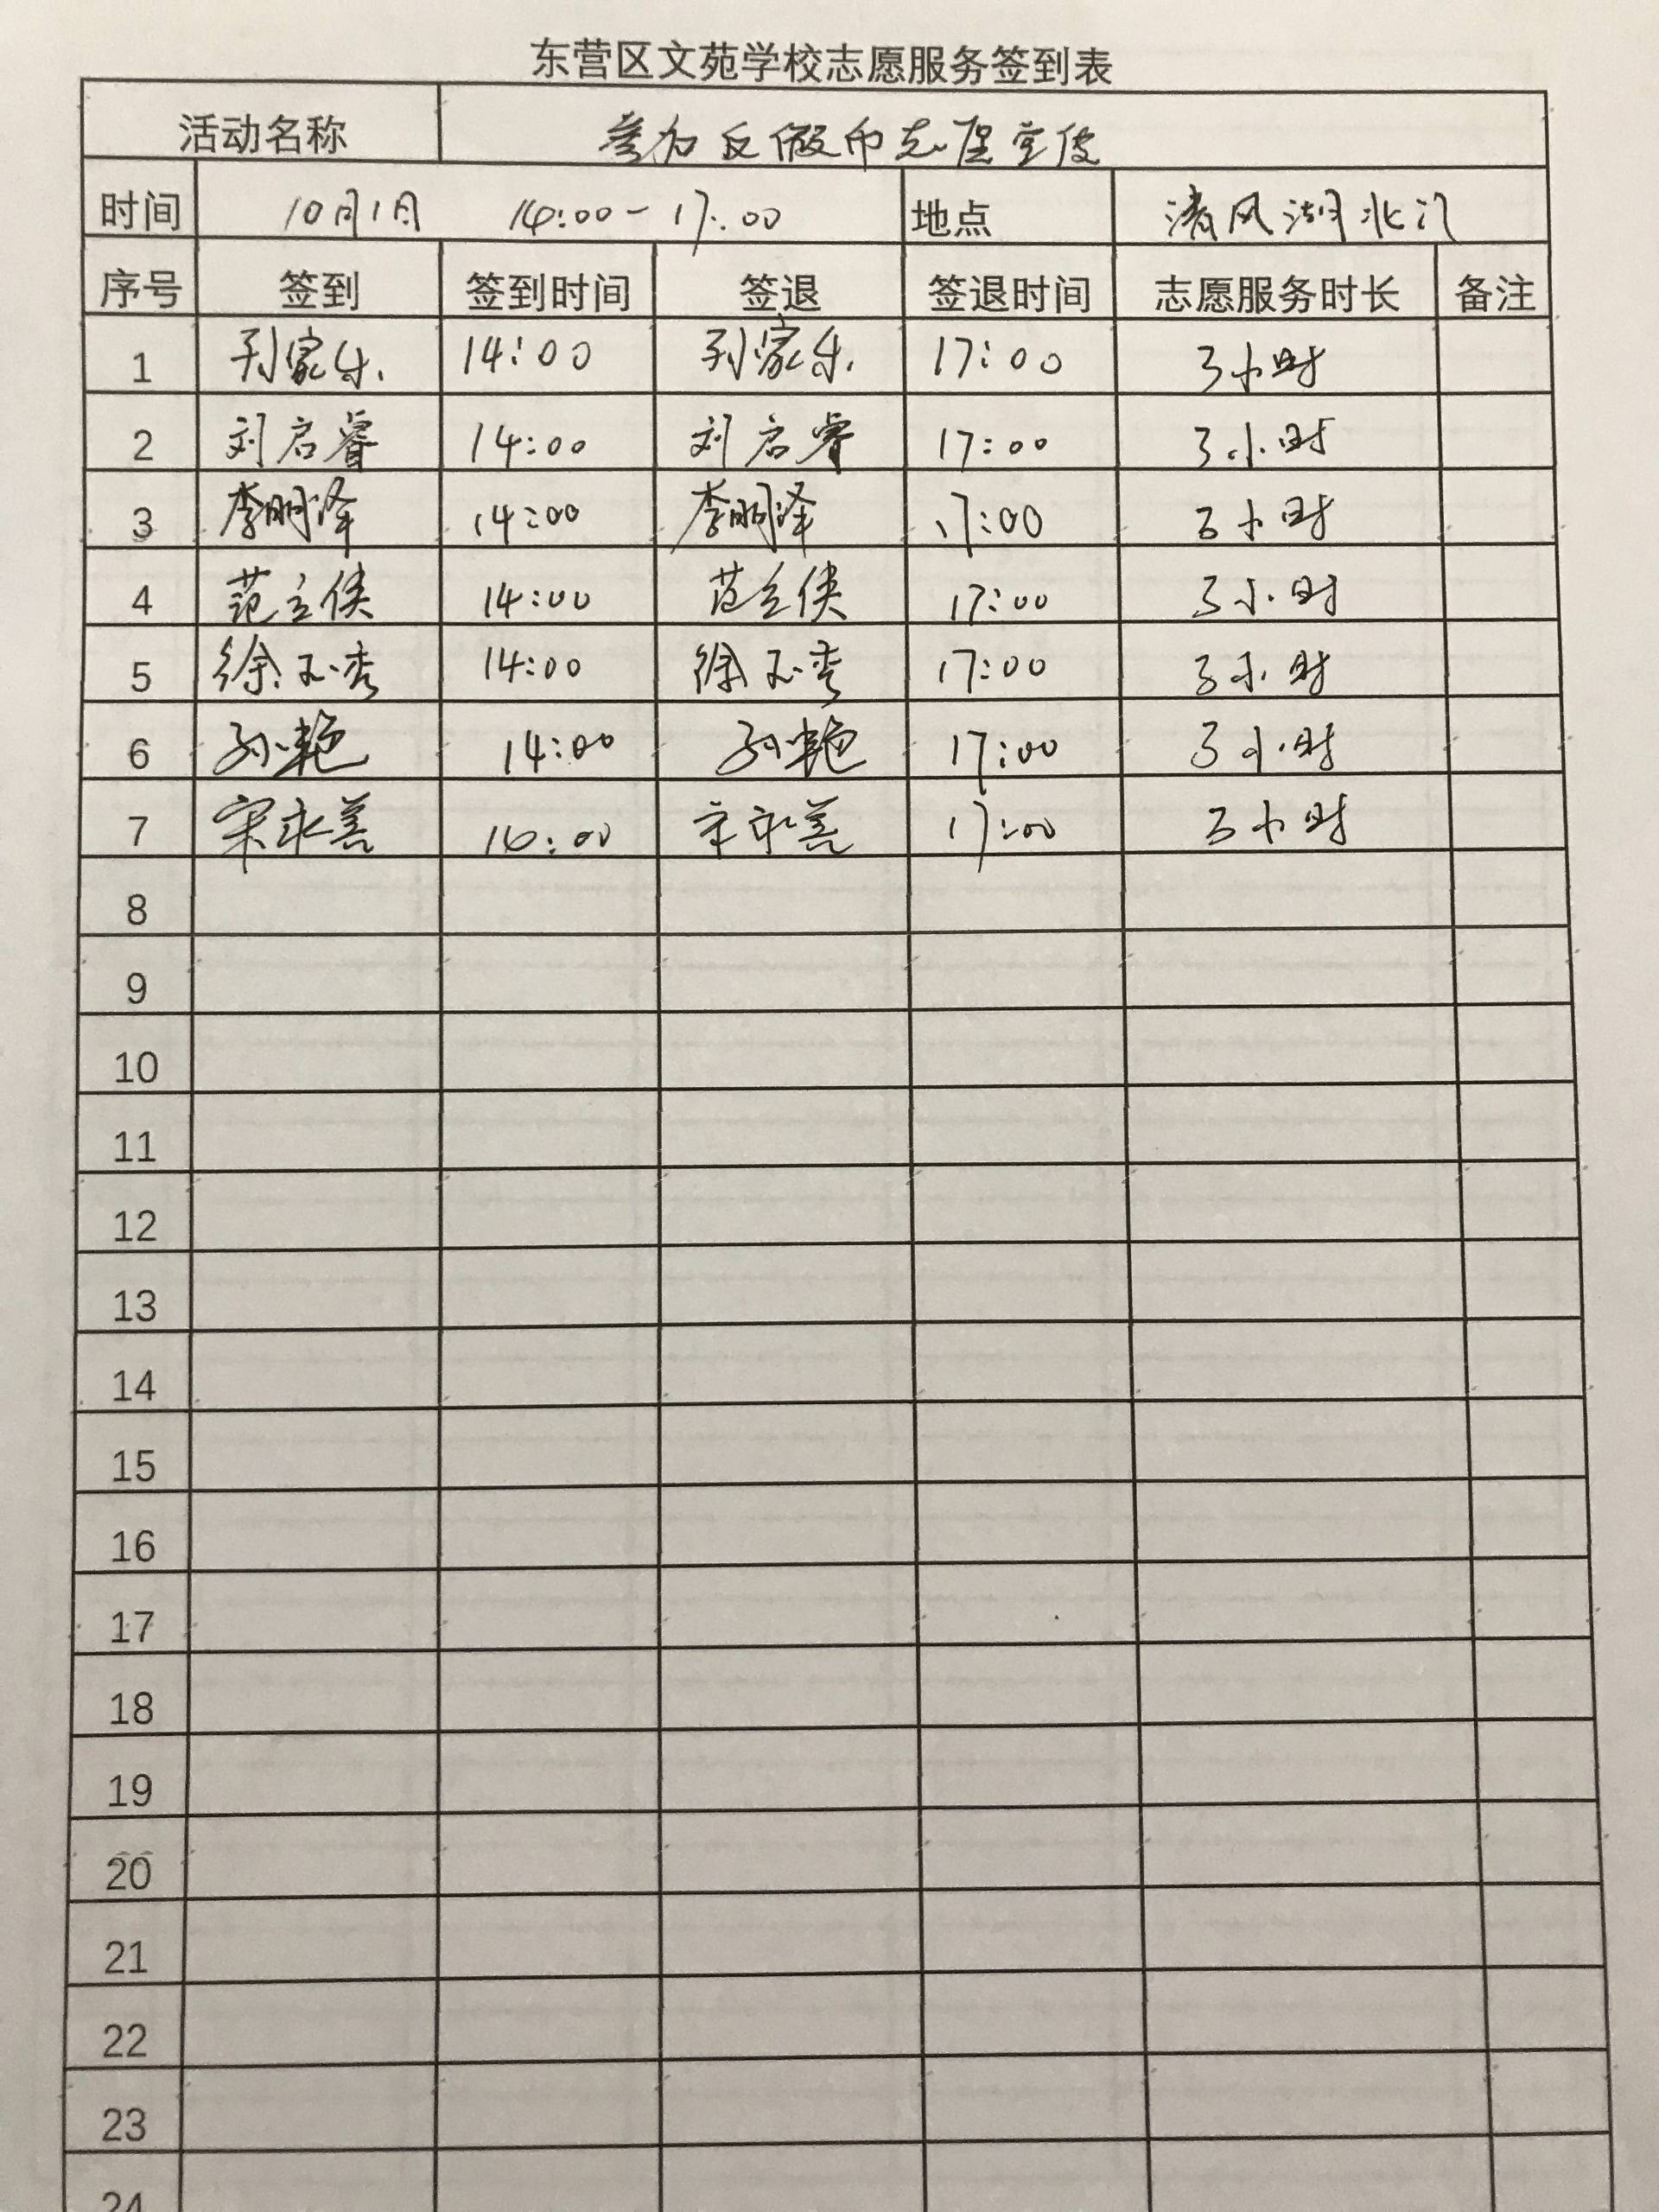 东营区文苑学校志愿服务签到表
活动名称 参加反假币志愿宣传
时间 10月1日 14:00-17:00 地点 清风湖北门
序号 签到 签到时间 签退 签退时间 志愿服务时长 备注
1 孙家乐 14:00 孙家乐 17:00 3小时
2 刘启睿 14:00 刘启睿 17:00 3小时
3 李明泽 14:00 李明泽 17:00 3小时
4 范立侠 14:00 范立侠 17:00 3小时
5 徐玉秀 14:00 徐玉秀 17:00 3小时
6 孙艳 14:00 孙艳 17:00 3小时
7 宋永善 14:00 宋永善 17:00 3小时
8
9
10
11
12
13
14
15
16
17
18
19
20
21
22
23
24